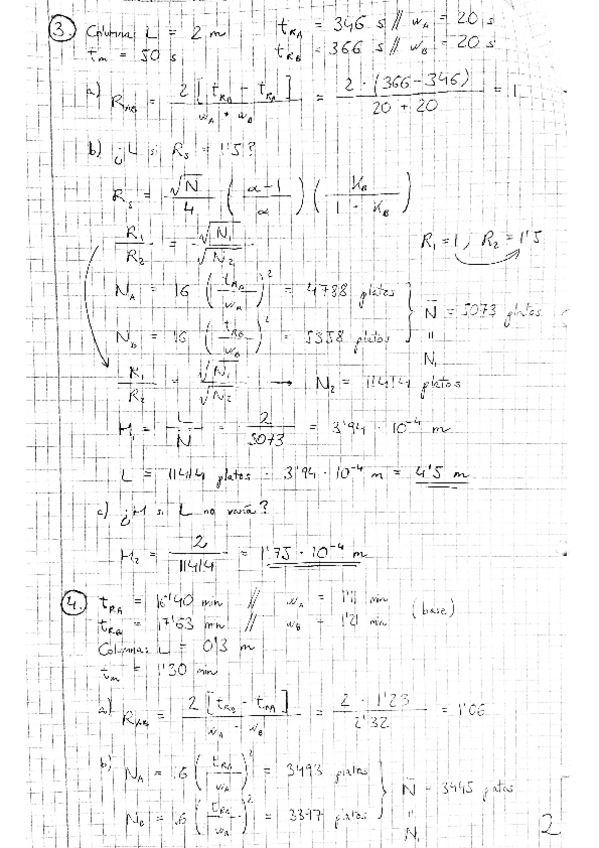 ③ Columna L = 2 m t_RA = 346 s // w_A = 20 s
t_m = 50 s t_RB = 366 s // w_B = 20 s
a) R_AB = 2 [t_RB - t_RA] / (w_A + w_B) = 2 · (366-346) / (20 + 20) = 1
b) ¿L si R_s = 1'5?
R_s = √N / 4 ( (α-1) / α ) ( K_B / (1 + K_B) )
R_1 / R_2 = √N_1 / √N_2 R_1 = 1, R_2 = 1'5
N_A = 16 (t_RA / w_A)² = 4788 platos
N_B = 16 (t_RB / w_B)² = 5358 platos N̄ = 5073 platos
= N_1
R_1 / R_2 = √N_1 / √N_2 → N_2 = 11414 platos
H_1 = L / N = 2 / 5073 = 3'94 · 10⁻⁴ m
L = 11414 platos · 3'94 · 10⁻⁴ m = 4'5 m
c) ¿H si L no varía?
H_2 = 2 / 11414 = 1'75 · 10⁻⁴ m
④ t_RA = 16'40 min // w_A = 1'11 min
t_RB = 17'63 min // w_B = 1'21 min (base)
Columna: L = 0'3 m
t_m = 1'30 min
a) R_AB = 2 [t_RB - t_RA] / (w_A + w_B) = 2 · 1'23 / 2'32 = 1'06
b) N_A = 16 (t_RA / w_A)² = 3493 platos
N_B = 16 (t_RB / w_B)² = 3397 platos N̄ = 3445 platos
= N_1
2